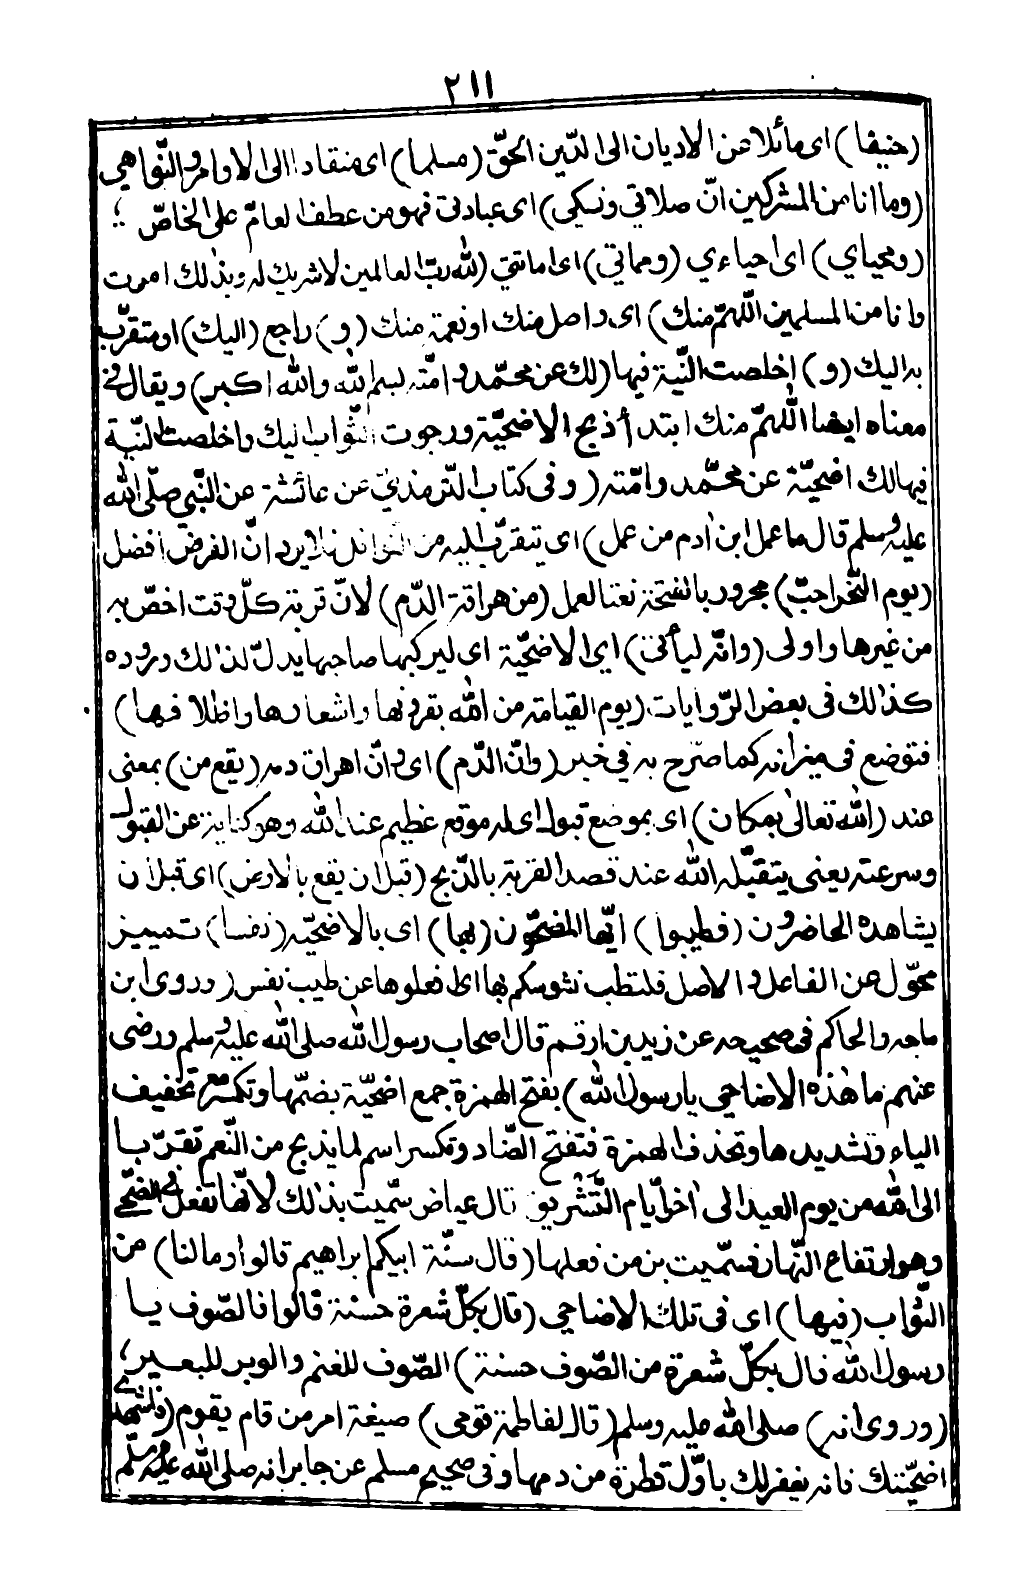 ٢١١
(حنيفا) اى مائلا عن الاديان الى الدّين الحقّ (مسلما) اى منقادا الى الاوامر والنّواهى
(وما انا من المشركين انّ صلاتي ونسكي) اى عبادتى فهو من عطف العامّ على الخاصّ
(ومحياي) اى احياءي (ومماتي) اى اماتتي (لله ربّ العالمين لا شريك له وبذٰلك امرت
وانا من المسلمين اللّهمّ منك) اى واصل منك او نعمة منك (و) راجع (اليك) او متقرّب
به اليك (و) اخلصت النّية فيها (لك عن محمّد وامّته بسم الله والله اكبر) ويقال فى
معناه ايضا اللّهمّ منك ابتدأ ذبح الاضحيّة ورجوت الثّواب اليك واخلصت النّية
فيها لك اضحيّة عن محمّد وامّته (وفى كتاب التّرمذيّ عن عائشة عن النّبي صلّى الله
عليه وسلم قال ما عمل ابن اٰدم من عمل) اى يتقرّب اليه من النوافل فلا يرد انّ الفرض افضل
(يوم النّحر احبّ) مجرور بالفتحة نعتا لعمل (من هراقة الدّم) لانّ قربة كلّ وقت اخصّ به
من غيرها واولى (وانّه ليأتى) اى الاضحيّة اى ليركبها صاحبها يدلّ لذٰلك وروده
كذٰلك فى بعض الرّوايات (يوم القيامة من الله بقرونها واشعارها واظلافها)
فتوضع فى ميزانه كما صرّح به في خبر (وانّ الدّم) اى وانّ اهراق دمه (يقع من) بمعنى
عند (الله تعالى بمكان) اى بموضع قبول اى له موقع عظيم عند الله وهو كناية عن القبول
وسرعته يعنى يتقبّله الله عند قصد القربة بالذّبح (قبل ان يقع بالارض) اى قبل ان
يشاهده الحاضرون (فطيبوا) ايّها المضحّون (بها) اى بالاضحيّة (نفسا) تمييز
محوّل عن الفاعل والاصل فلتطب نفوسكم بها اى افعلوها عن طيب نفس (وروى ابن
ماجه والحاكم فى صحيحه عن زيد بن ارقم قال اصحاب رسول الله صلى الله عليه وسلم ورضى
عنهم ما هٰذه الاضاحى يا رسول الله) بفتح الهمزة جمع اضحيّة بضمّها وتكسر مع تخفيف
الياء وتشديدها وتحذف الهمزة فتفتح الضّاد وتكسر اسم لما يذبح من النّعم تقرّبا
الى الله من يوم العيد الى اٰخر ايّام التّشريق قال عياض سمّيت بذٰلك لانّها تفعل فى الضّحى
وهو ارتفاع النّهار فسمّيت بزمن فعلها (قال سنّة ابيكم ابراهيم قالوا وما لنا) من
الثّواب (فيها) اى فى تلك الاضاحى (قال بكلّ شعرة حسنة قالوا فالصّوف يا
رسول الله قال بكلّ شعرة من الصّوف حسنة) الصّوف للغنم والوبر للبعير
(وروى انه) صلى الله عليه وسلم (قال لفاطمة قومى) صيغة امر من قام يقوم (فاشهدى
اضحيّتك فانه يغفر لك باوّل قطرة من دمها وفى صحيح مسلم عن جابر انه صلى الله عليه وسلّم